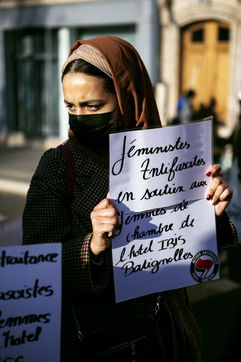 Féministes
Antifascistes
en soutien aux
femmes de
chambre de
l'hotel IBIS
Batignolles
traitance
fascistes
femmes
hotel